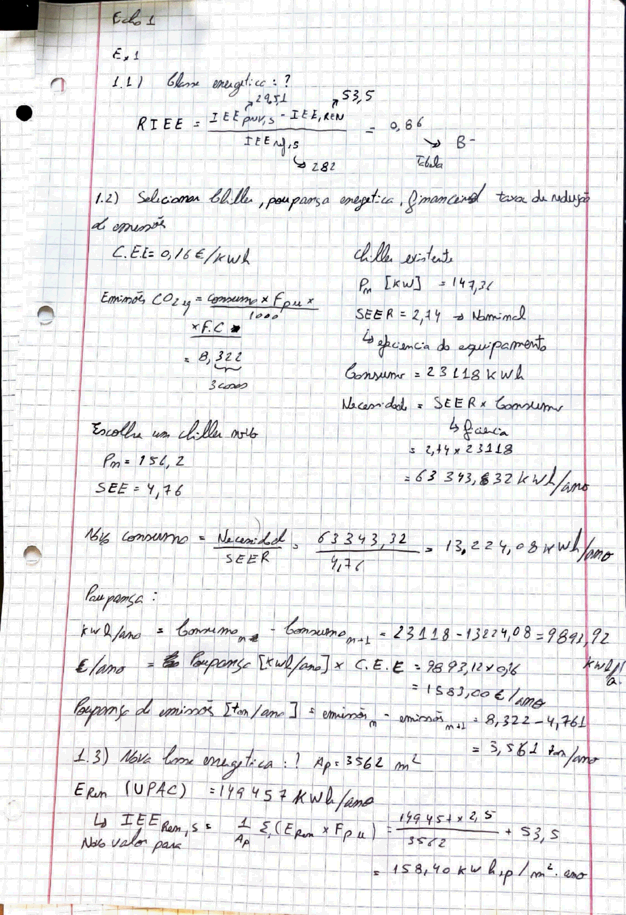 Echo 1
E,1
1.1) Classe energetica: ?
RIEE = (IEE pr,S - IEE,REN) / IEE ref,S = 0,86
53,5
282
Tabela B-
1.2) Selecionar Chiller, poupança energetica, financeira taxa de redução
de emissões
C.E.E = 0,16 €/kWh
Emissões CO2 y = consumo x Fpu x / 1000
x F.C
= 8,322
3 casas
Chiller existente
Pn [KW] = 147,36
SEER = 2,74 → Nominal
↳ eficiencia do equipamento
Consumo = 23118 KWh
Necessidade = SEER x Consumo
= 2,74 x 23118
= 63 343,32 kWh/ano
Escolha um chiller novo
Pn = 156,2
SEE = 4,76
Novo consumo = Necessidad / SEER = 63343,32 / 4,76 = 13,224,08 KWh/ano
Poupança:
KWh/ano = Consumo n - Consumo n+1 = 23118 - 13224,08 = 9893,92
KWh/a.
€/ano = Poupança [KWh/ano] x C.E.E = 9893,12 x 0,16
= 1583,00 €/ano
Poupança de emissões [ton/ano] = emissões n - emissões n+1 = 8,322 - 4,761
= 3,561 ton/ano
1.3) Nova classe energetica: ? Ap = 3562 m²
E Ren (UPAC) = 149457 KWh/ano
↳ IEE Ren,S = 1/Ap Σ (E Ren x Fpu) = 149457 x 2,5 / 3562 + 53,5
Novo valor para
= 158,40 KWh,p / m². ano